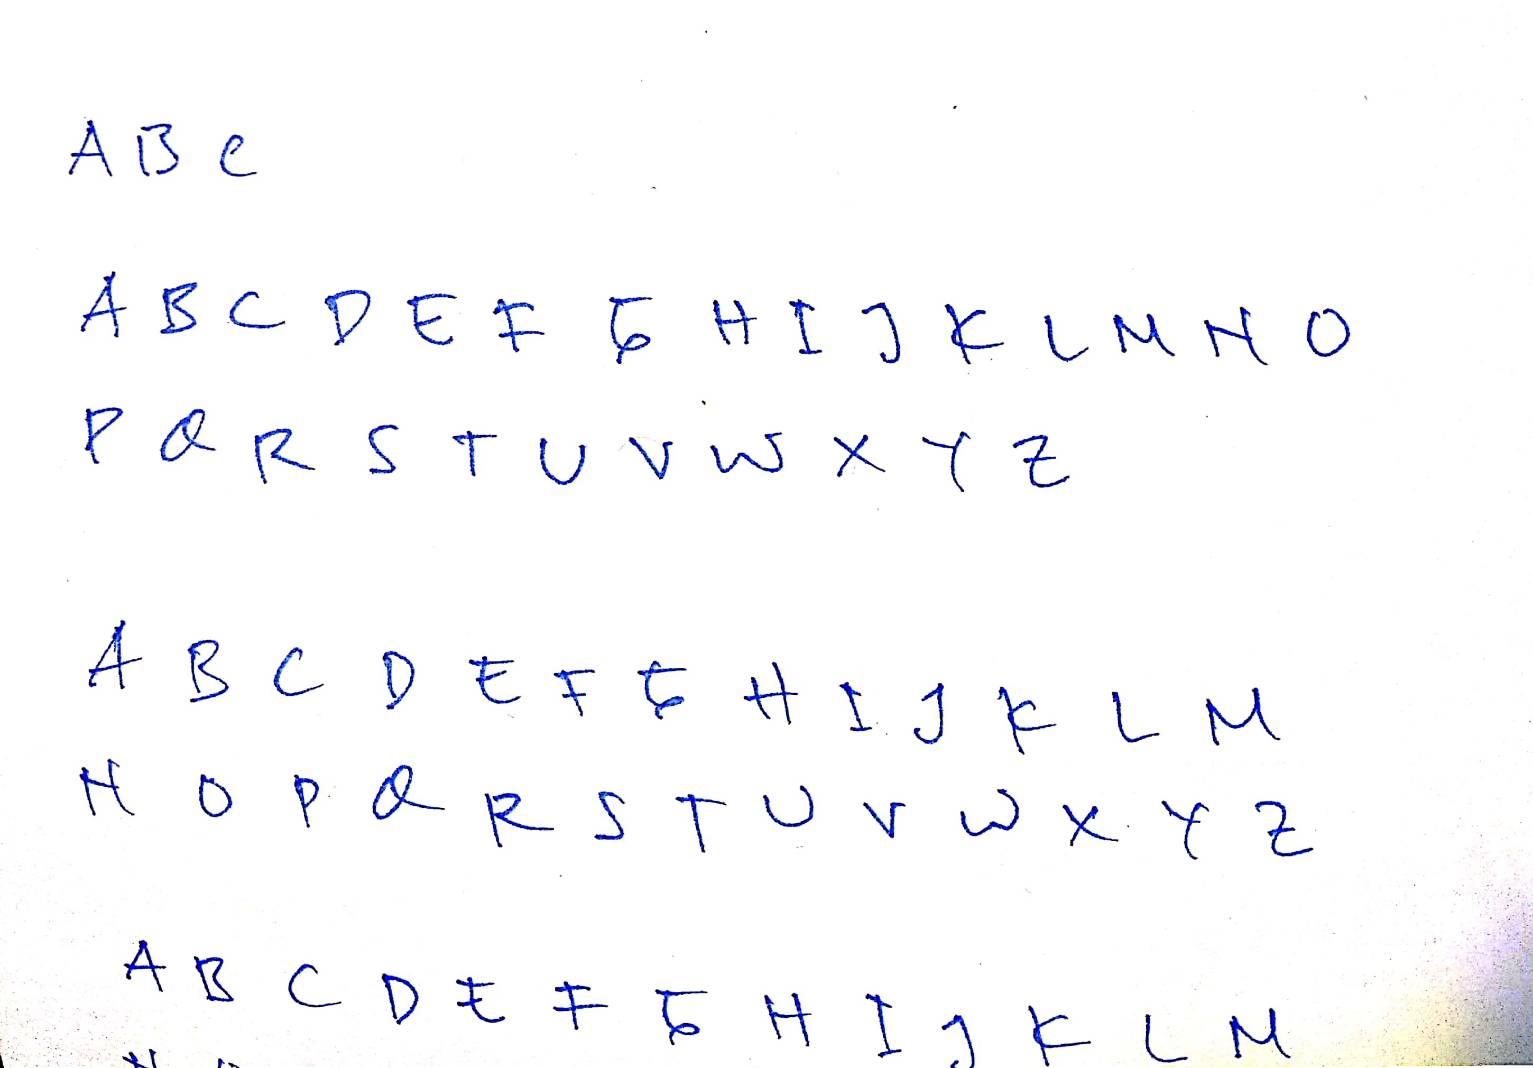 A B C
A B C D E F G H I J K L M N O
P Q R S T U V W X Y Z
A B C D E F G H I J K L M
N O P Q R S T U V W X Y Z
A B C D E F G H I J K L M